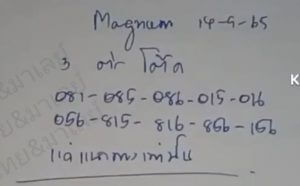 Magnum 14-5-65
3 ตัว โต๊ด
081-085-086-015-016
056-815-816-856-156
แค่แนวทางเท่านั้น
K